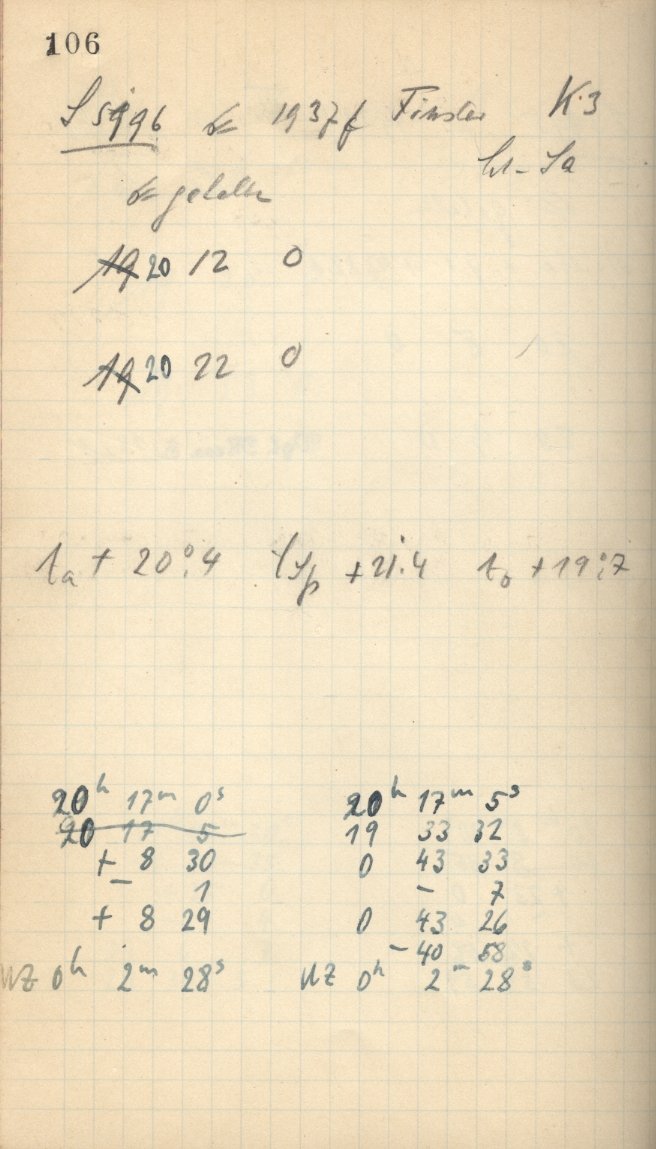 106
S 5996 1937f Finsler K3
20 12 0
20 22 0
ta + 20°.4 + 21.4 to + 19°.7
20h 17m 0s
20 17 5
+ 8 30
- 1
+ 8 29
UZ 0h 2m 28s
20h 17m 5s
19 33 32
0 43 33
- 7
0 43 26
- 40 58
UZ 0h 2m 28s